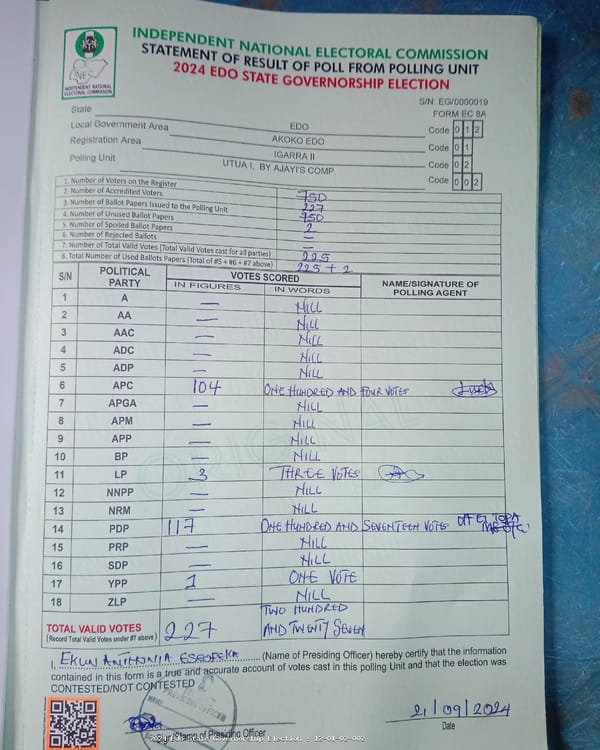 INDEPENDENT NATIONAL ELECTORAL COMMISSION
STATEMENT OF RESULT OF POLL FROM POLLING UNIT
2024 EDO STATE GOVERNORSHIP ELECTION
INEC
INDEPENDENT NATIONAL
ELECTORAL COMMISSION
S/N: EG/0000019
FORM EC 8A
State EDO Code 0 1 2
Local Government Area AKOKO EDO Code 0 1
Registration Area IGARRA II Code 0 2
Polling Unit UTUA I, BY AJAYI'S COMP. Code 0 0 2
1. Number of Voters on the Register 750
2. Number of Accredited Voters 227
3. Number of Ballot Papers Issued to the Polling Unit 750
4. Number of Unused Ballot Papers
5. Number of Spoiled Ballot Papers 2
6. Number of Rejected Ballots —
7. Number of Total Valid Votes (Total Valid Votes cast for all parties) 225
8. Total Number of Used Ballots Papers (Total of #5 + #6 + #7 above) 225 + 2
S/N POLITICAL PARTY VOTES SCORED NAME/SIGNATURE OF POLLING AGENT
IN FIGURES IN WORDS
1 A — NILL
2 AA — NILL
3 AAC — NILL
4 ADC — NILL
5 ADP — NILL
6 APC 104 ONE HUNDRED AND FOUR VOTES
7 APGA — NILL
8 APM — NILL
9 APP — NILL
10 BP — NILL
11 LP 3 THREE VOTES
12 NNPP — NILL
13 NRM — NILL
14 PDP 117 ONE HUNDRED AND SEVENTEEN VOTES
15 PRP — NILL
16 SDP — NILL
17 YPP 1 ONE VOTE
18 ZLP — NILL
TOTAL VALID VOTES 227 TWO HUNDRED AND TWENTY SEVEN
(Record Total Valid Votes under #7 above)
ORIGINAL
I, EKUN (Name of Presiding Officer) hereby certify that the information
contained in this form is a true and accurate account of votes cast in this polling Unit and that the election was
CONTESTED/NOT CONTESTED
21/09/2024
Sign/Stamp of Presiding Officer Date